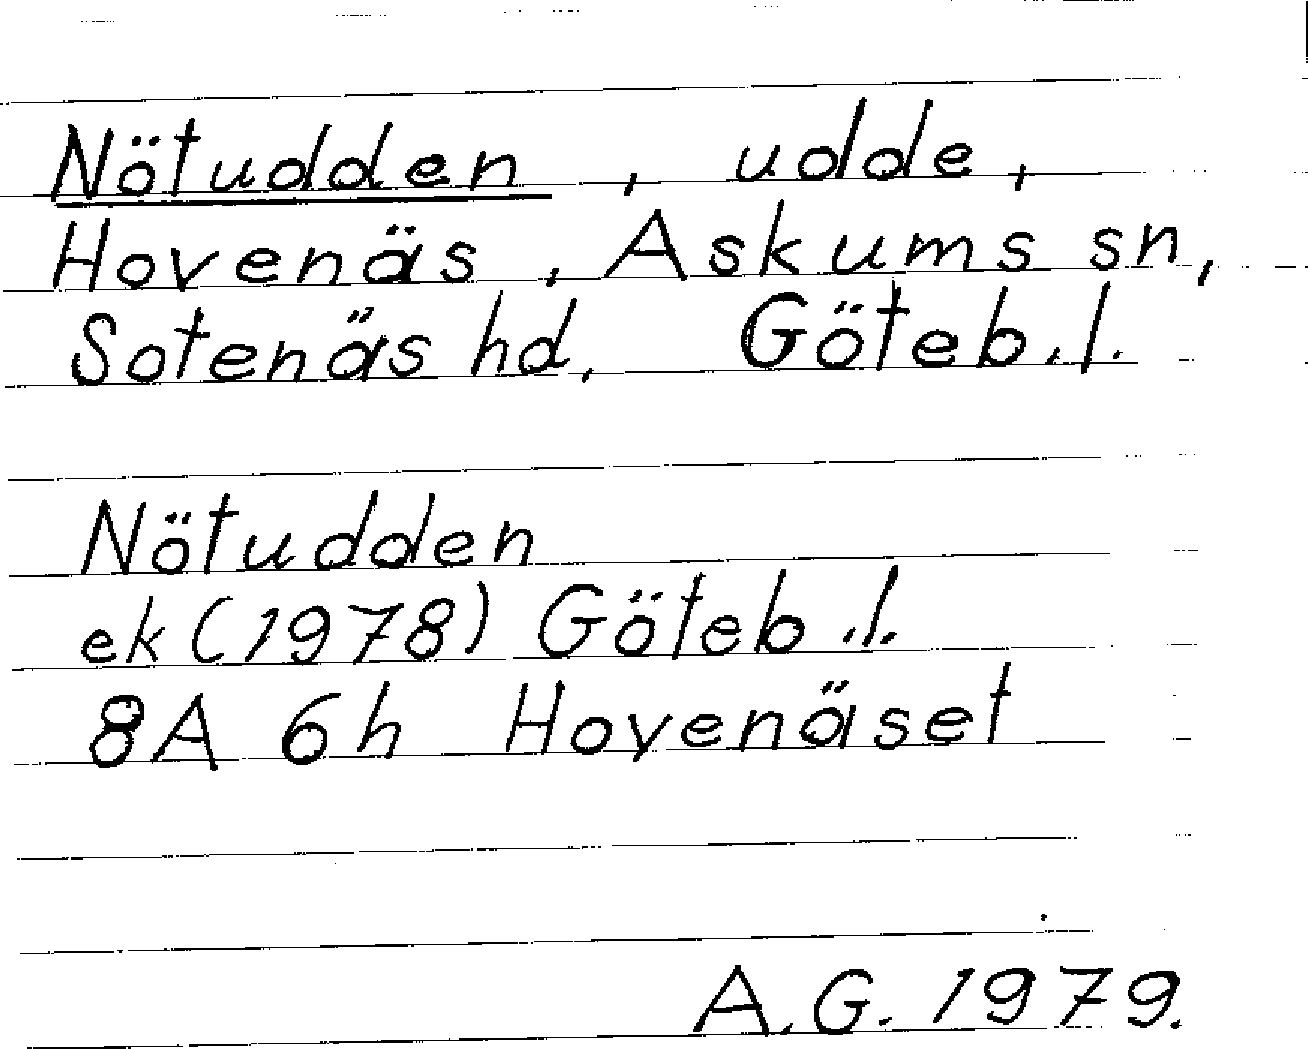 Nötudden, udde,
Hovenäs, Askums sn,
Sotenäs hd, Göteb.l.
Nötudden
ek (1978) Göteb.l.
8A 6h Hovenäset
A.G. 1979.